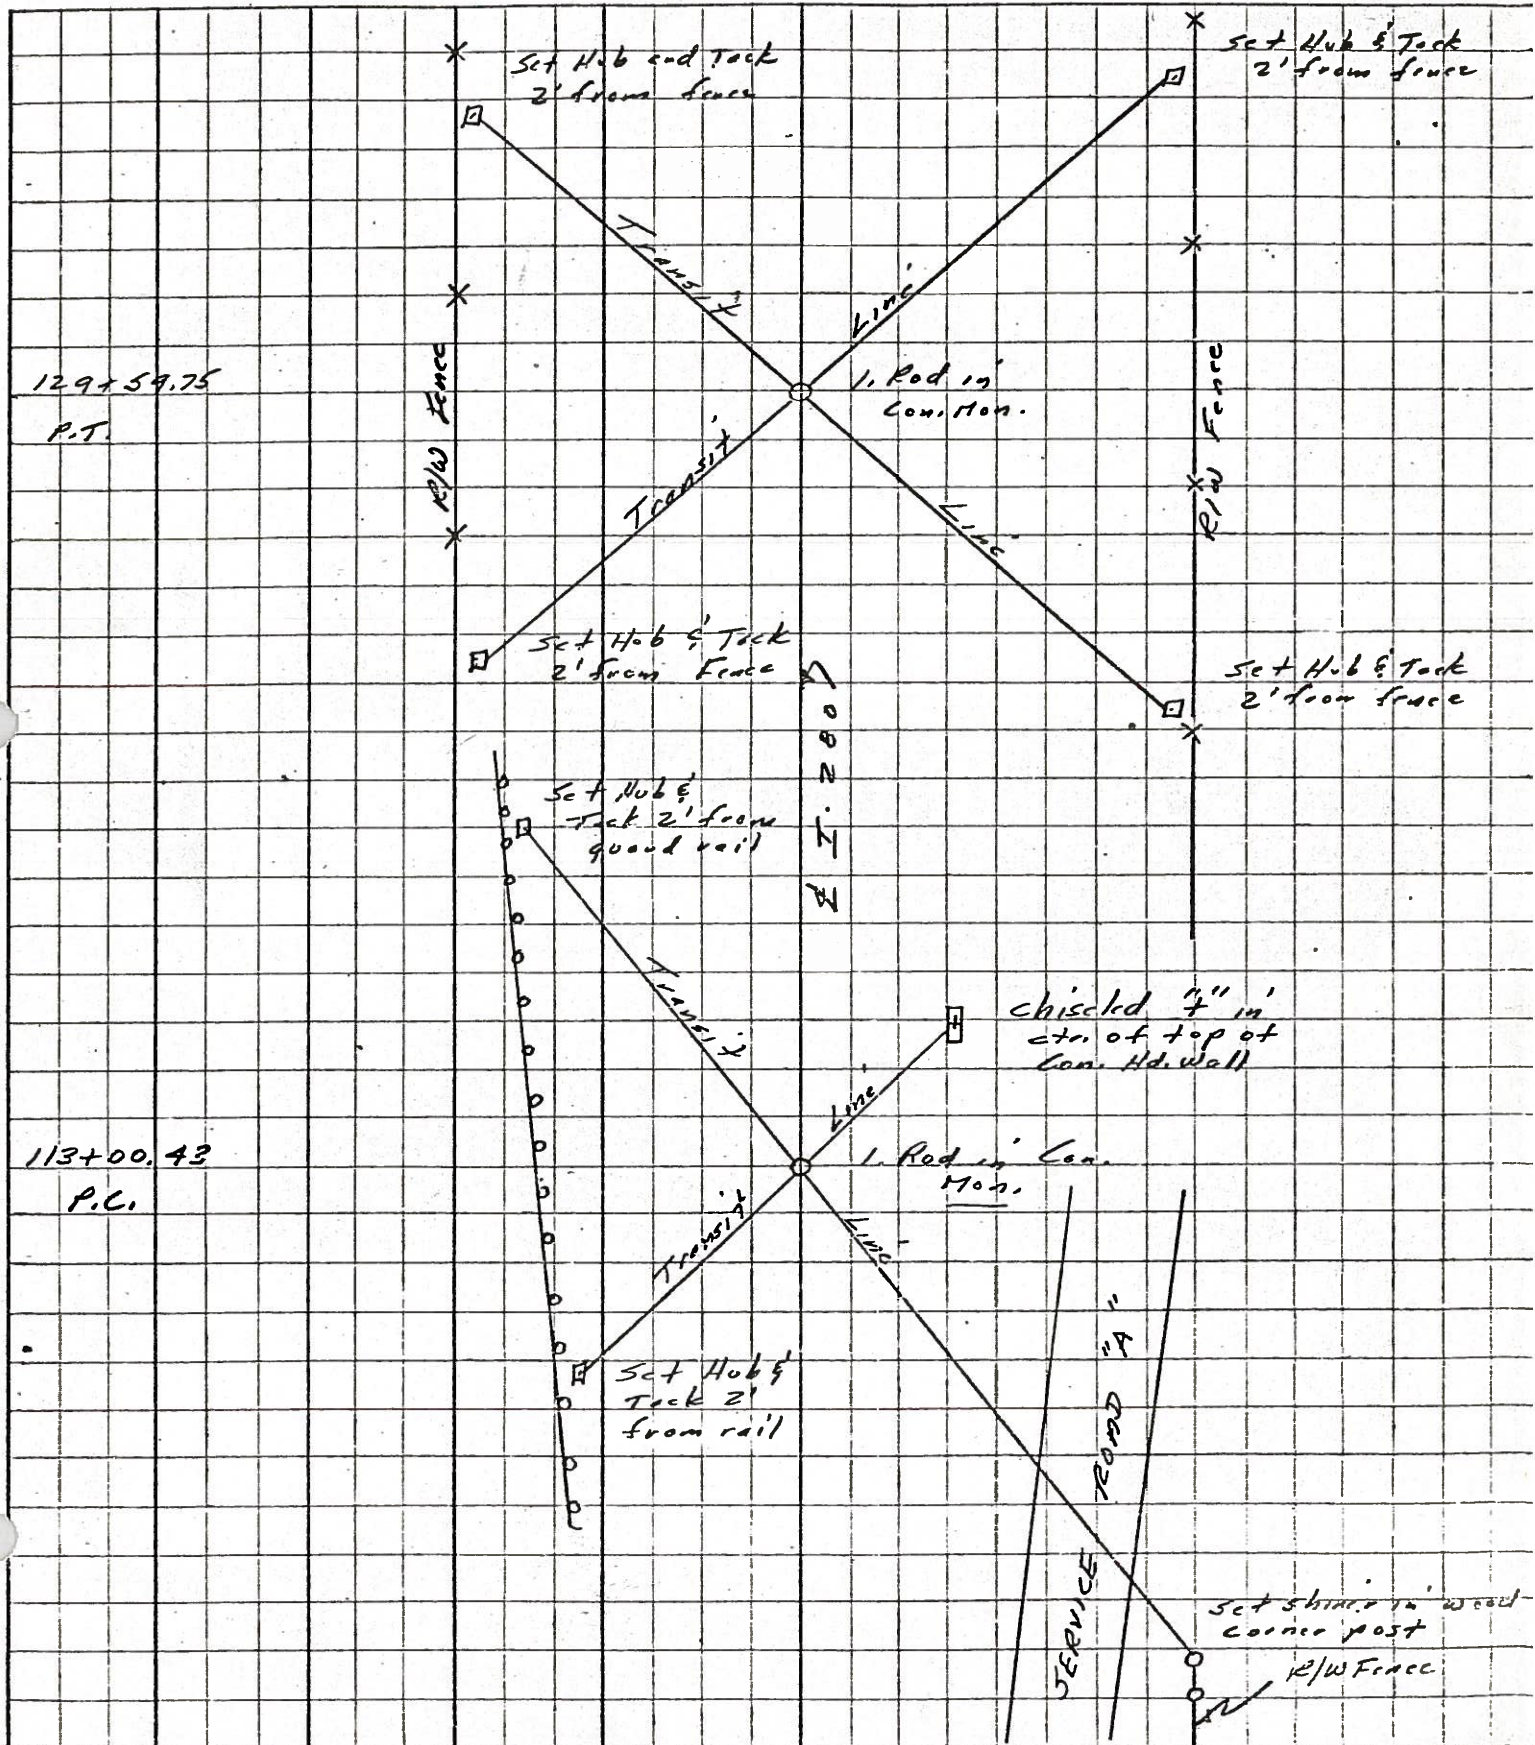 Set Hub and Tack
2' from fence
Set Hub & Tack
2' from fence
Transit
Line
129+59.75
P.T.
R/W Fence
I. Rod in
Con. Mon.
R/W Fence
Transit
Line
Set Hub & Tack
2' from Fence
Set Hub & Tack
2' from fence
℄ I. 280
Set Hub &
Tack 2' from
guard rail
Transit
chiseled "+" in
ctr. of top of
Con. Hd. Wall
Line
113+00.43
P.C.
I. Rod in Con.
Mon.
Transit
Line
Set Hub &
Tack 2'
from rail
SERVICE ROAD "A"
Set shiner in wood
corner post
R/W Fence